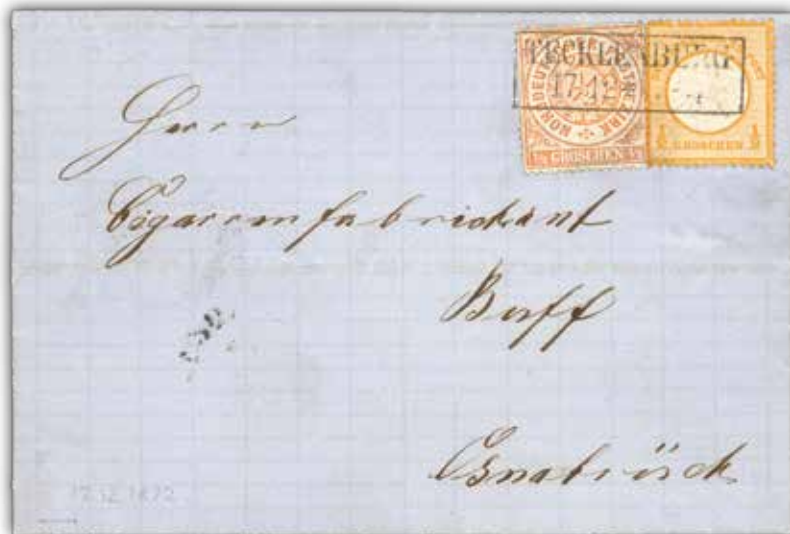 TECKLENBURG
17 12
NORDDEUTSCHER POSTBEZIRK
1/2 GROSCHEN 1/2
1/2 GROSCHEN 1/2
Herrn
Cigarrenfabrikant
Osnabrück
17.12.1872